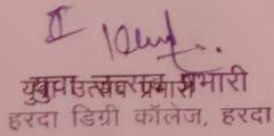 II
युवा उत्सव प्रभारी
हरदा डिग्री कॉलेज, हरदा